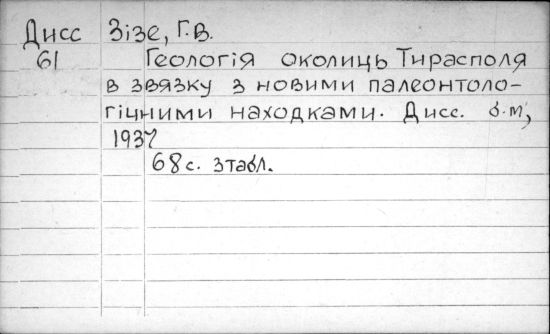 Дисс Зізе, Г.В.
61 Геологія околиць Тирасполя
в звязку з новими палеонтоло-
гічними находками. Дисс. б.м,
1937
68 с. 3 табл.